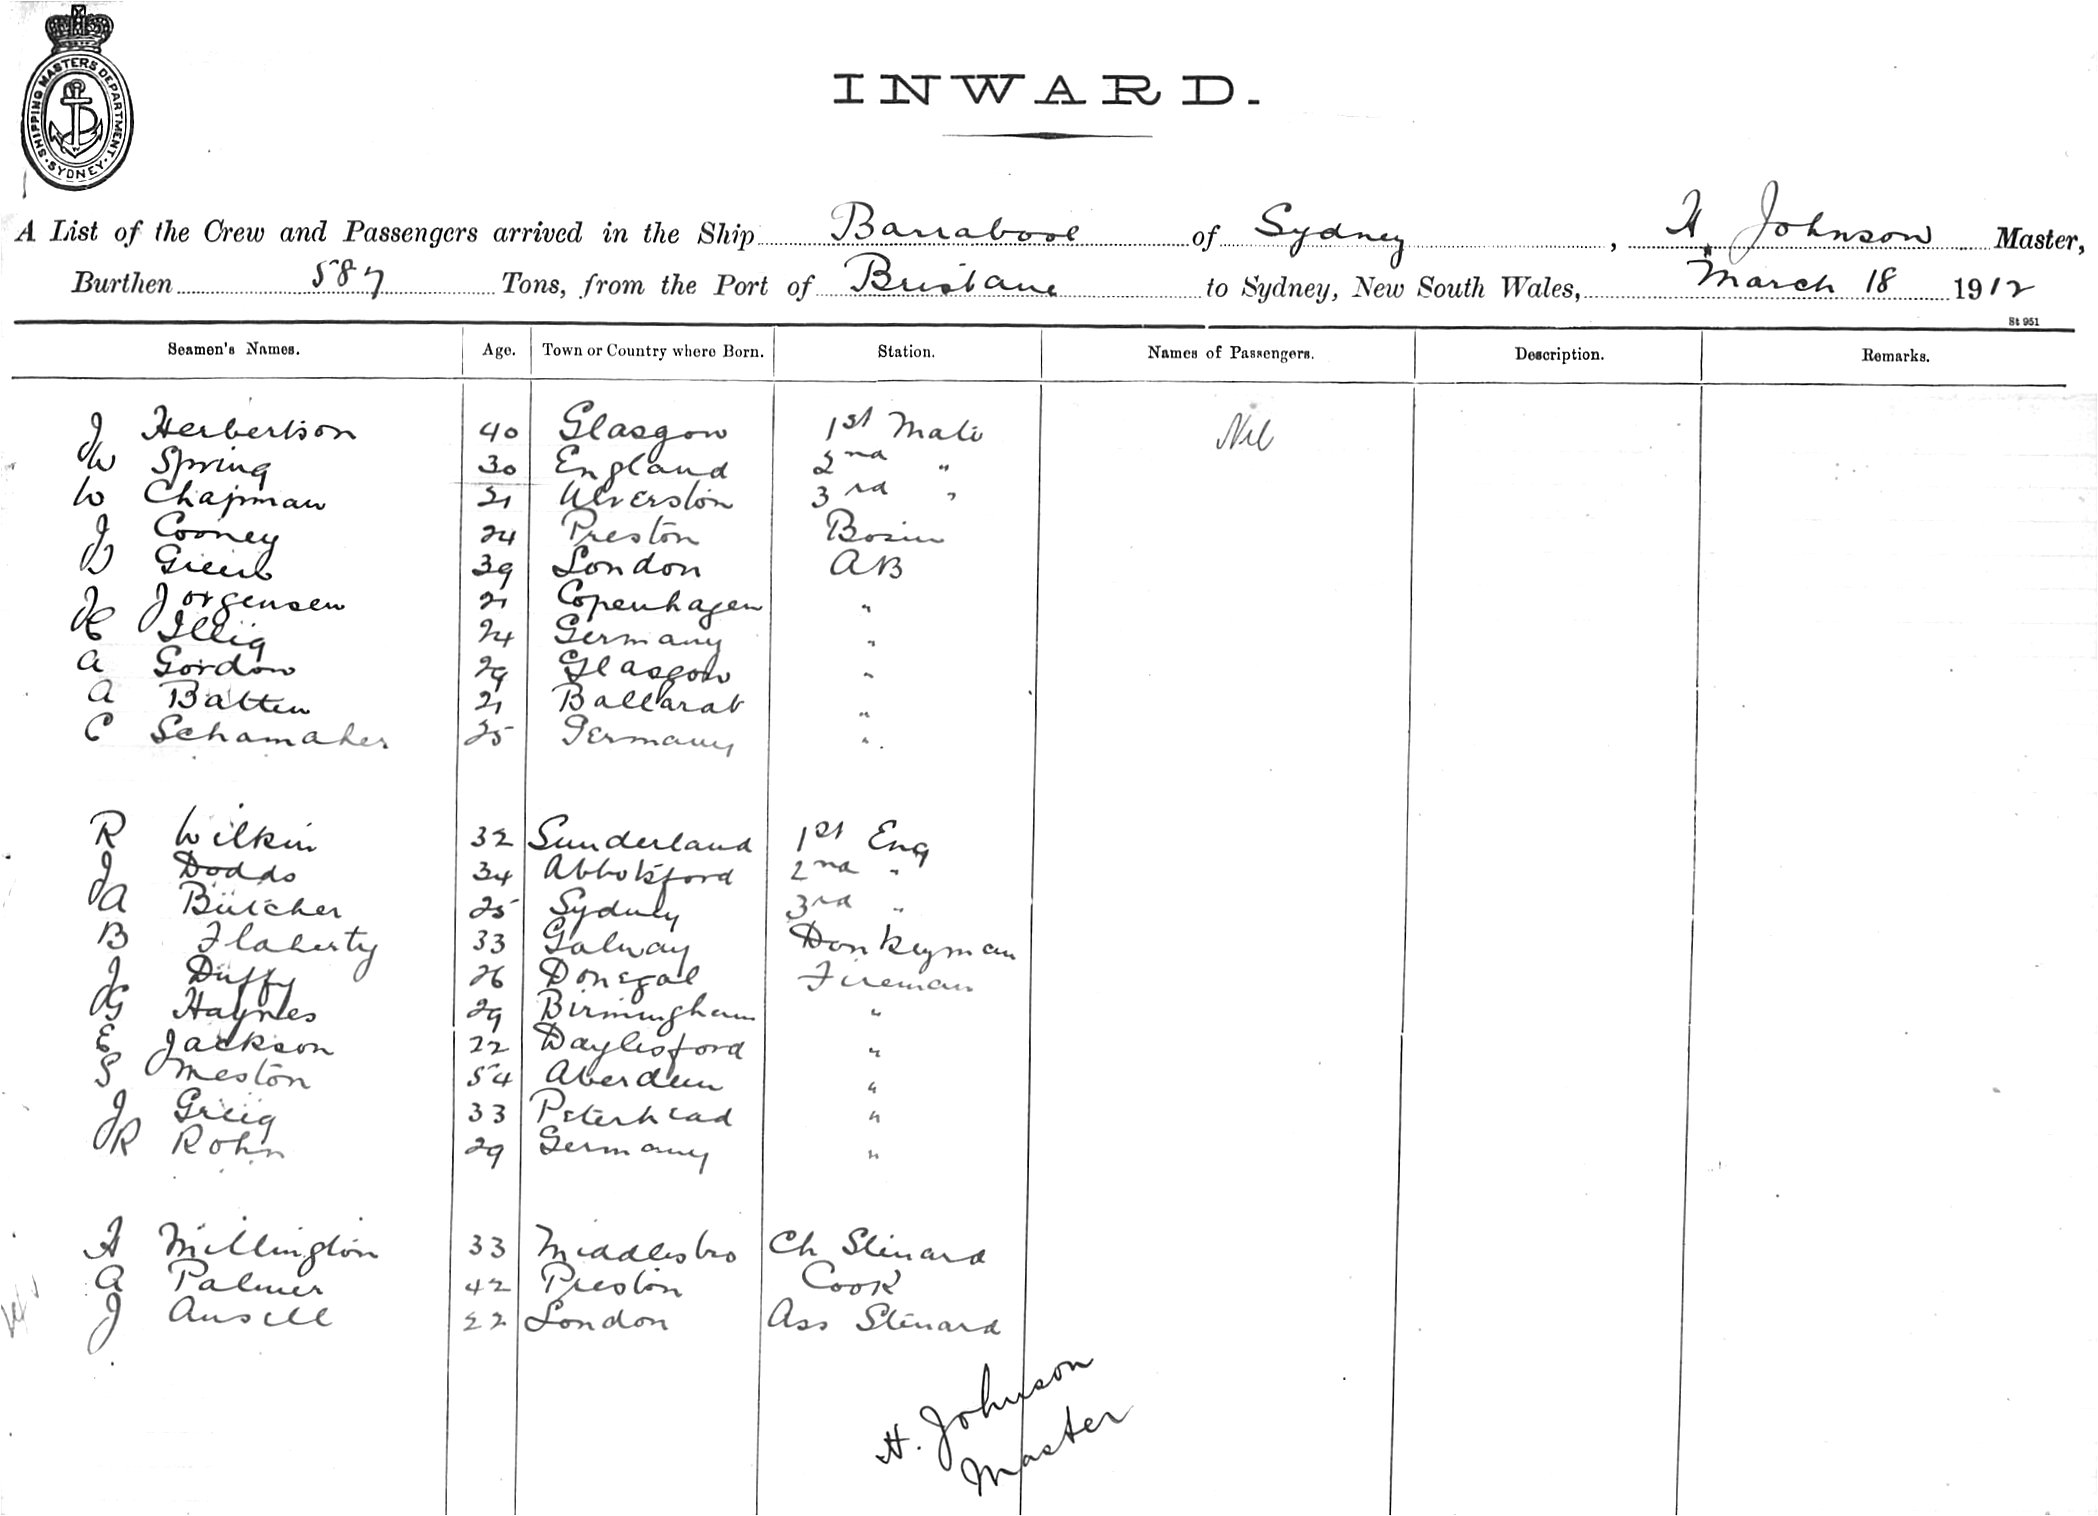 SHIPPING MASTERS DEPARTMENT · SYDNEY ·
INWARD.
A List of the Crew and Passengers arrived in the Ship Barrabool of Sydney, H Johnson Master,
Burthen 587 Tons, from the Port of Brisbane to Sydney, New South Wales, March 18 1912
St 951
Seamen's Names. Age. Town or Country where Born. Station. Names of Passengers. Description. Remarks.
J Herbertson 40 Glasgow 1st Mate Nil
W Spring 30 England 2nd "
W Chapman 21 Ulverston 3rd "
J Cooney 24 Preston Bosun
D Green 39 London AB
J Jorgensen 21 Copenhagen "
C Illig 24 Germany "
A Gordon 29 Glasgow "
A Batten 21 Ballarat "
C Schamaker 25 Germany "
R Wilkin 32 Sunderland 1st Eng
J Dodds 34 Abbotsford 2nd "
A Butcher 25 Sydney 3rd "
B Flaherty 33 Galway Donkeyman
J Duffy 26 Donegal Fireman
G Haynes 29 Birmingham "
E Jackson 22 Daylesford "
S Meston 54 Aberdeen "
J Greig 33 Peterhead "
R Rohn 29 Germany "
H Millington 33 Middlesbro Ch Steward
A Palmer 42 Preston Cook
J Ansell 22 London Ass Steward
H. Johnson
Master